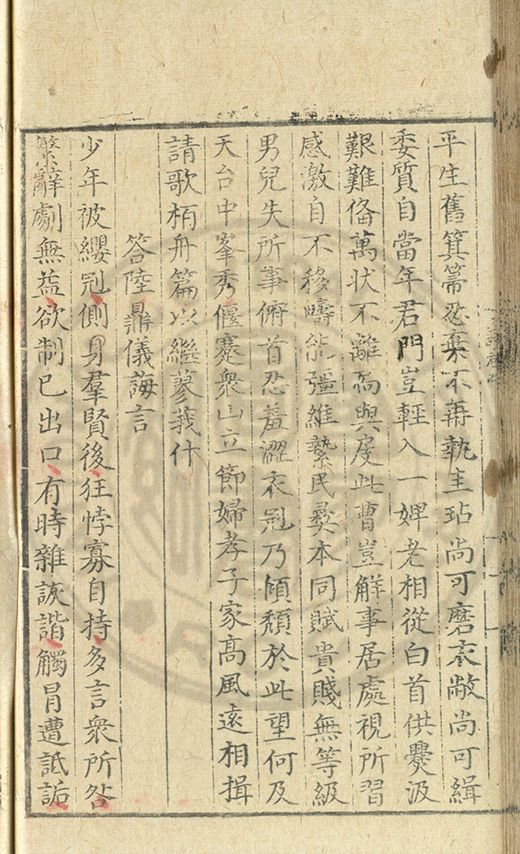 平生舊箕箒忍棄不再執圭玷尚可磨衣敝尚可緝
委質自當年君門豈輕入一婢老相從白首供爨汲
艱難備萬狀不離而與度此曹豈觧事居處視所習
感激自不移疇能彊維縶民彛本同賦貴賤無等級
男兒失所事俯首忍羞澀衣冠乃傾頽於此望何及
天台中峯秀偃蹇衆山立節婦孝子家高風逺相揖
請歌栢舟篇以繼蓼莪什
答陸鼎儀誨言
少年被纓冠側身羣賢後狂悖寡自持多言衆所咎
繁辭劇無益欲制已出口有時雜詼諧觸冒遭詆詬